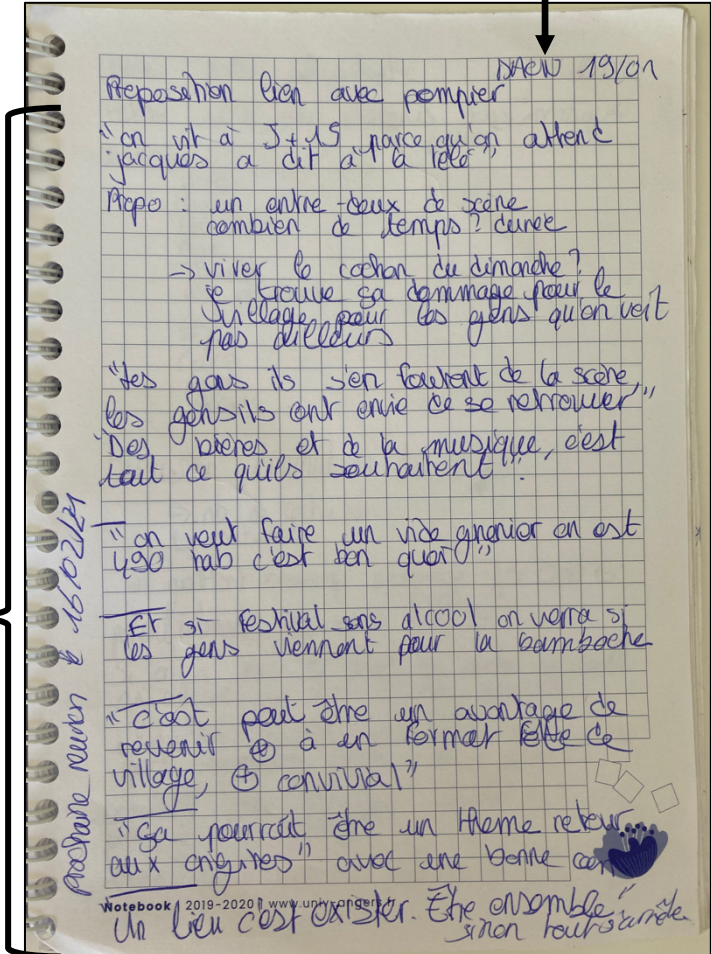 DAEN 19/01
Proposition lien avec pompier
"on vit à J+15 parce qu'on attend
jacques a dit à la télé"
Propo : un entre-deux de scène
combien de temps ? durée
→ virer le cochon du dimanche ?
je trouve ça dommage pour le
village, pour les gens qu'on voit
pas ailleurs
"les gens ils s'en foutent de la scène,
les gens ils ont envie de se retrouver"
"Des bières et de la musique, c'est
tout ce qu'ils souhaitent".
"on veut faire un vide grenier on est
490 hab c'est bon quoi"
Et si festival sans alcool on verra si
les gens viennent pour la bamboche
"c'est peut être un avantage de
revenir ⊕ à un format fête de
village, ⊕ convivial"
"ça pourrait être un thème retour
aux origines" avec une bonne
Notebook | 2019-2020 | www.univ-angers.fr
Un lieu c'est exister. Être ensemble"
sinon tout s'arrête.
Prochaine réunion le 16/02/21